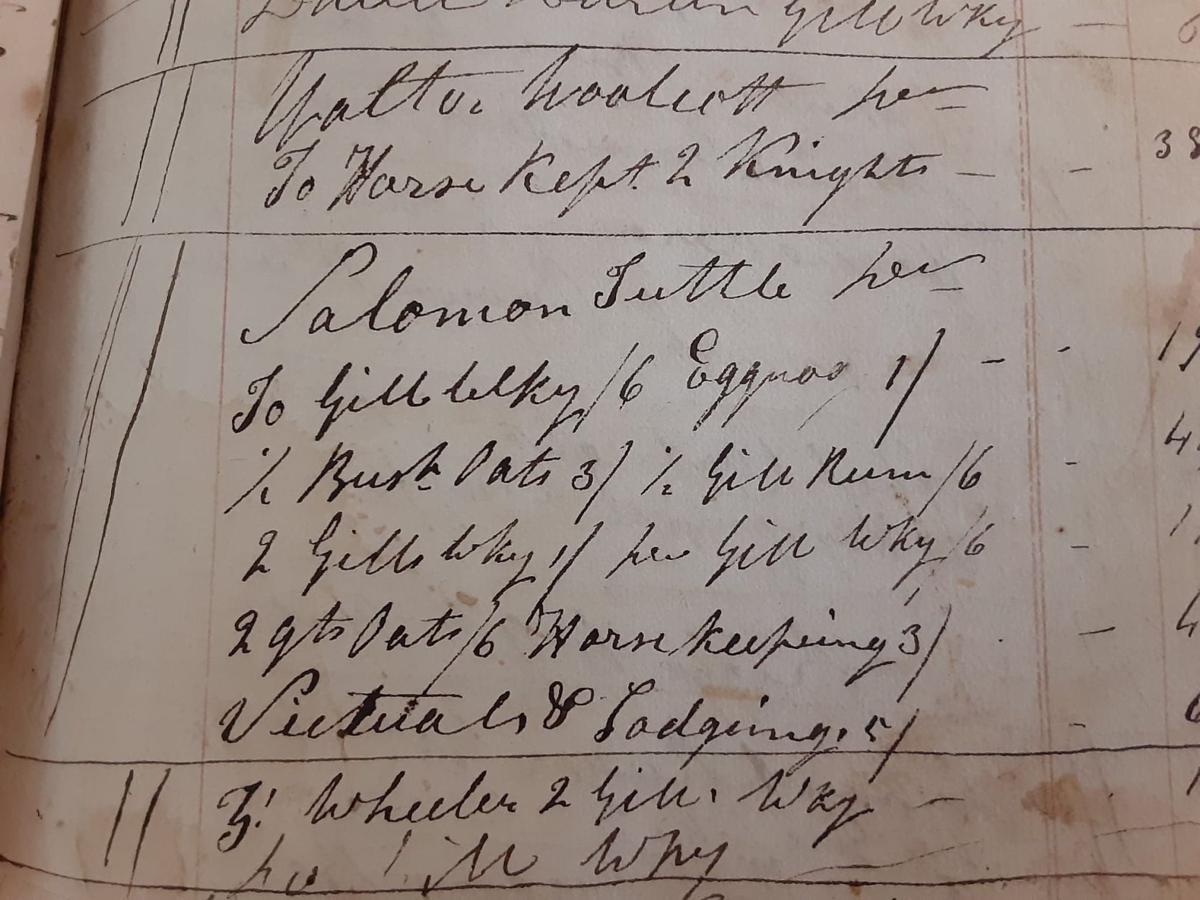 Gill Wky —
Walter Woolcott per
To Horse Kept 2 Knights — - 38
Salomon Tuttle per
To Gill Wky /6 Eggnog 1/ - - 19
1/2 Bush Oats 3/ 1/2 Gill Rum /6 - 4
2 Gills Wky 1/ per Gill Wky /6 - 1
2 qts Oats /6 Horsekeeping 3/ - 4
Victuals & Lodging 5/ -
Wheeler 2 Gill Wky —
Gill Wky